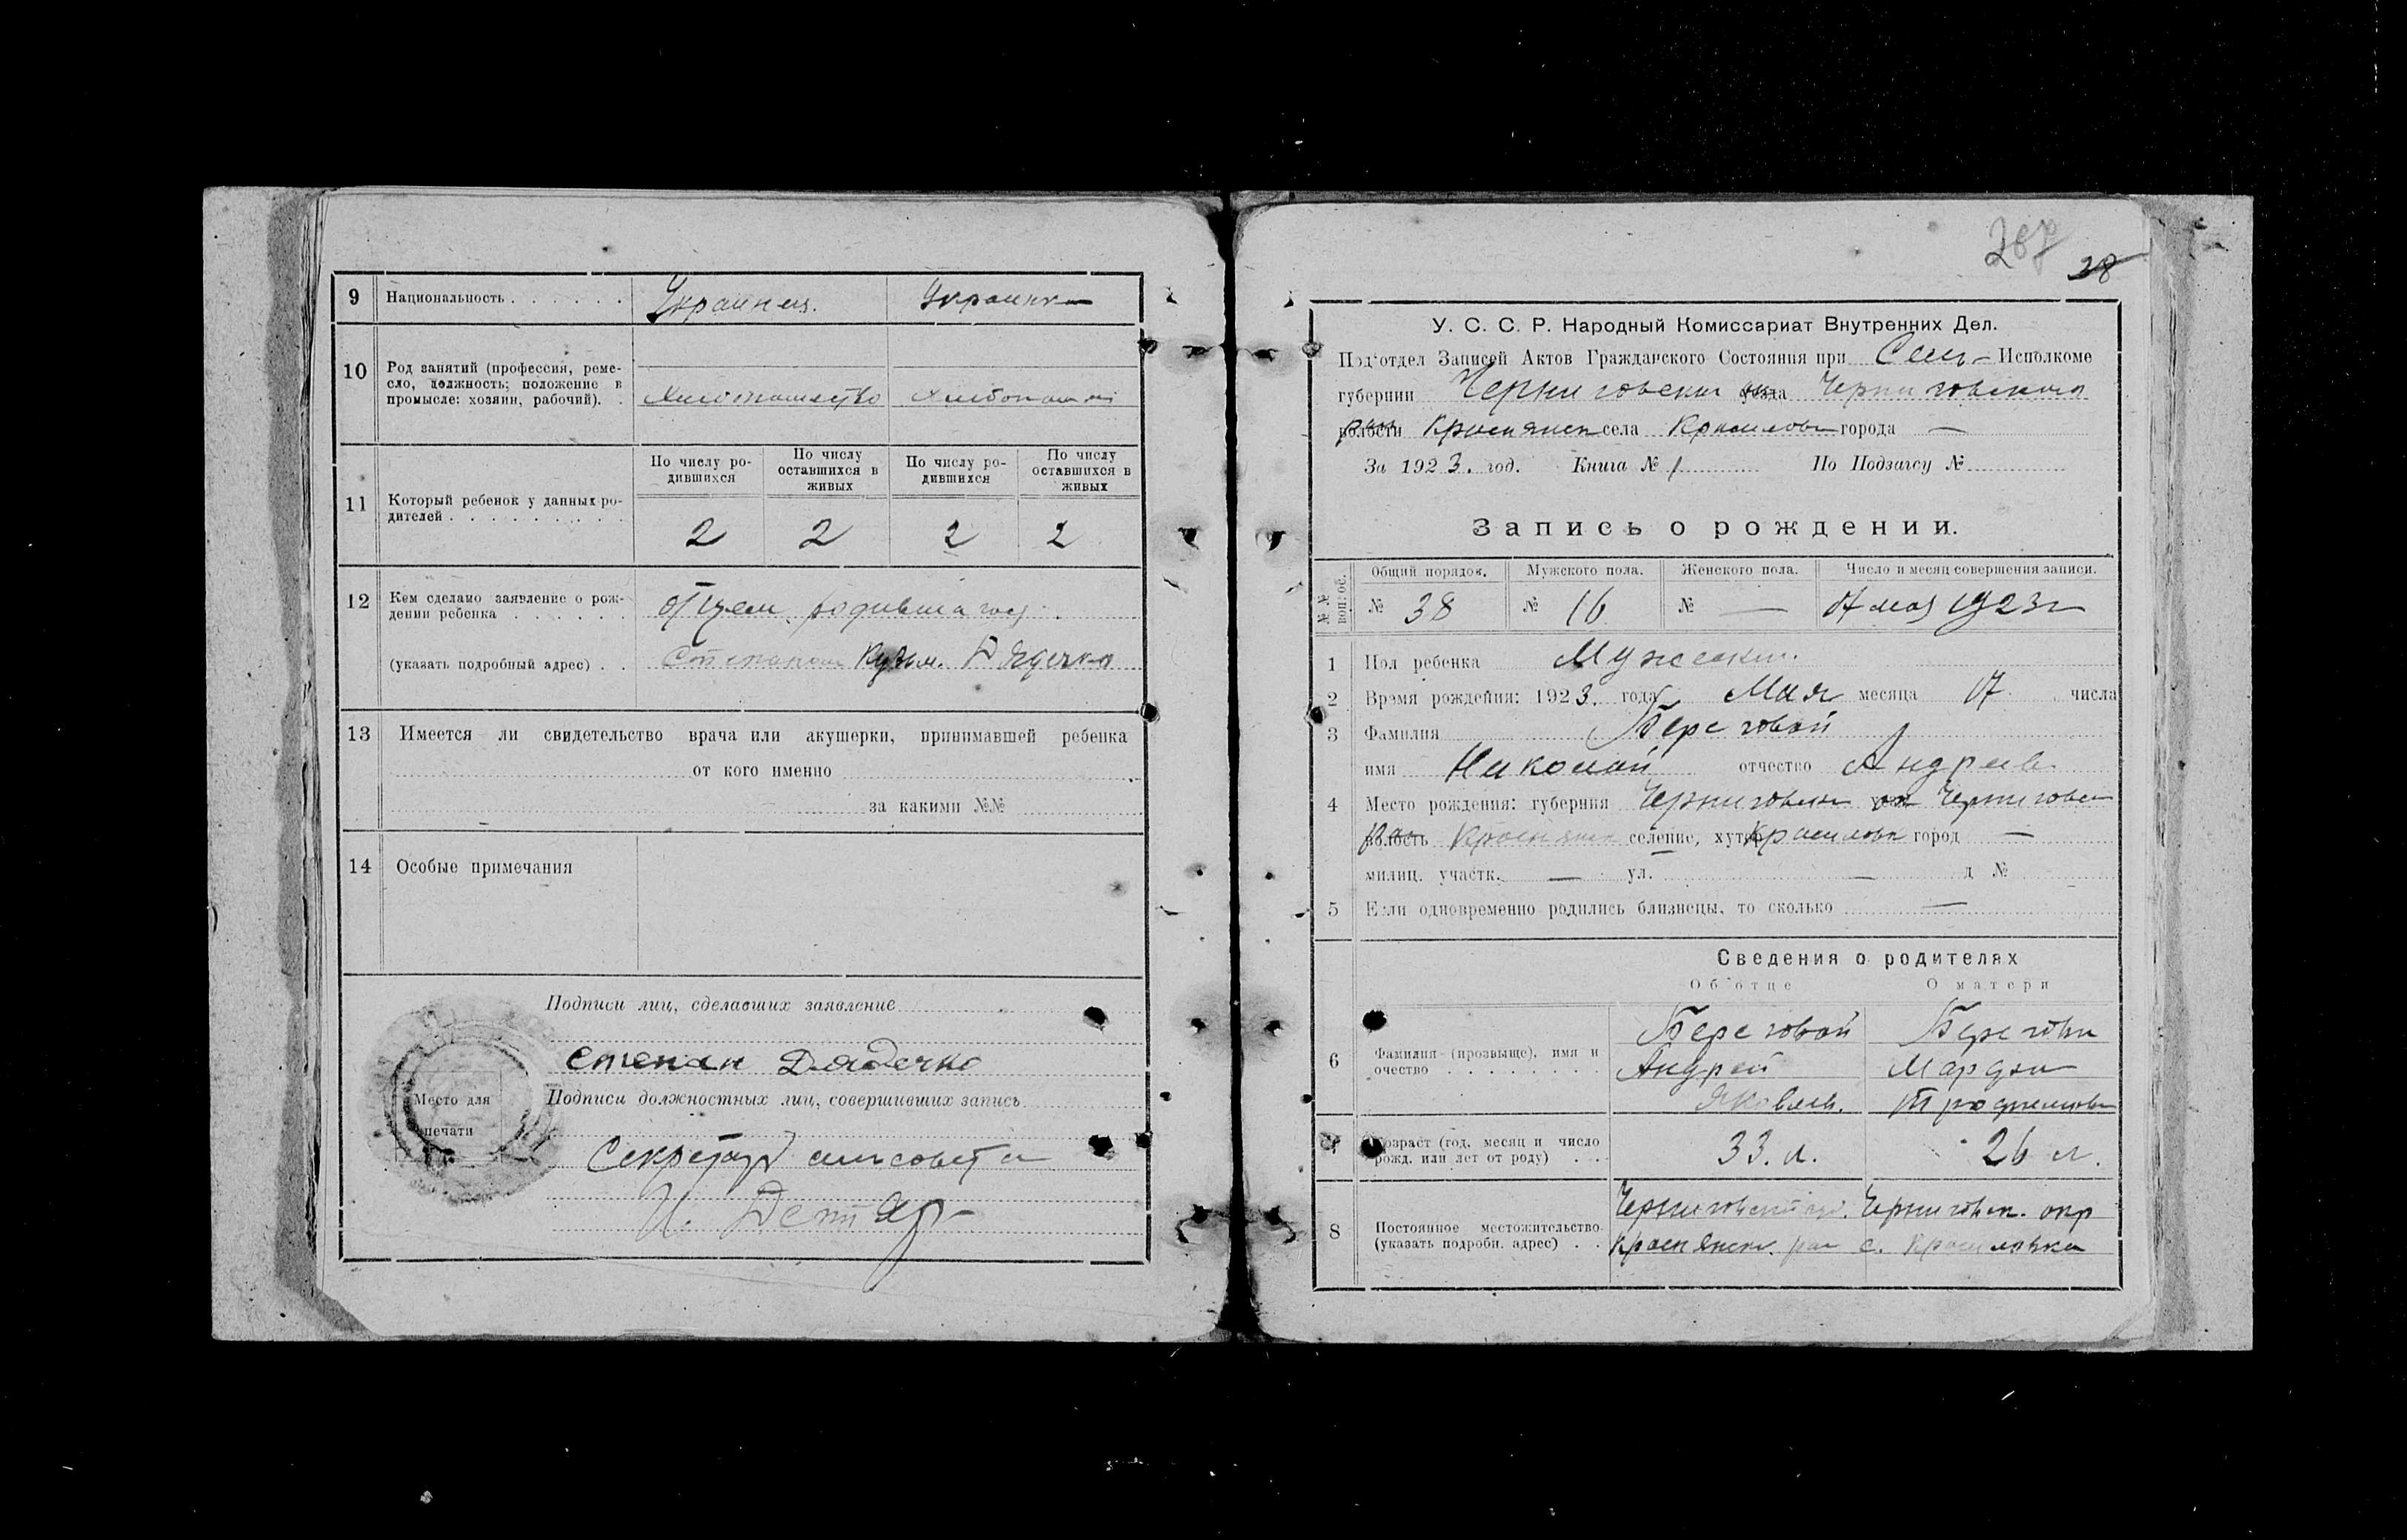 9 Национальность . . . . . . Украинец. Украинка
10 Род занятий (профессия, реме-
сло, должность; положение в
промысле: хозяин, рабочий). .
По числу ро-
дившихся
По числу
оставшихся в
живых
По числу ро-
дившихся
По числу
оставшихся в
живых
11 Который ребенок у данных ро-
дителей . . . . . . . . . .
2 2 2 2
12 Кем сделано заявление о рож-
дении ребенка . . . . . . отцем
(указать подробный адрес) . . Степаном Кузьм. Дядечко
13 Имеется ли свидетельство врача или акушерки, принимавшей ребенка
от кого именно
за какими №№
14 Особые примечания
Подписи лиц, сделавших заявление
Степан Дядечко
Место для
печати
Подписи должностных лиц, совершивших запись
Секретарь сельсовета
267
38
У. С. С. Р. Народный Комиссариат Внутренних Дел.
Под'отдел Записей Актов Гражданского Состояния при Сель- Исполкоме
губернии Черниговской уезда Черниговского
волости села города —
За 1923. год. Книга № 1 По Подзагсу №
Запись о рождении.
№№ вопрос. Общий порядок. Мужского пола. Женского пола. Число и месяц совершения записи.
№ 38 № 16 № — 17 мая 1923 г
1 Пол ребенка Мужеский.
2 Время рождения: 1923. года Мая месяца 17 числа
3 Фамилия Береговой
имя Николай отчество Андреев.
4 Место рождения: губерния Черниговск Черниговск
волость селение, хутор город —
милиц. участк. — ул. — д №
5 Если одновременно родились близнецы, то сколько —
Сведения о родителях
Об отце О матери
Береговой
6 Фамилия (прозвище), имя и
очество . . . . . . . .
Андрей
Яковлев.
7 Возраст (год, месяц и число
рожд. или лет от роду) . . 33. л. 26 л.
8 Постоянное местожительство
(указать подробн. адрес) . .
Черниговск. окр
с.